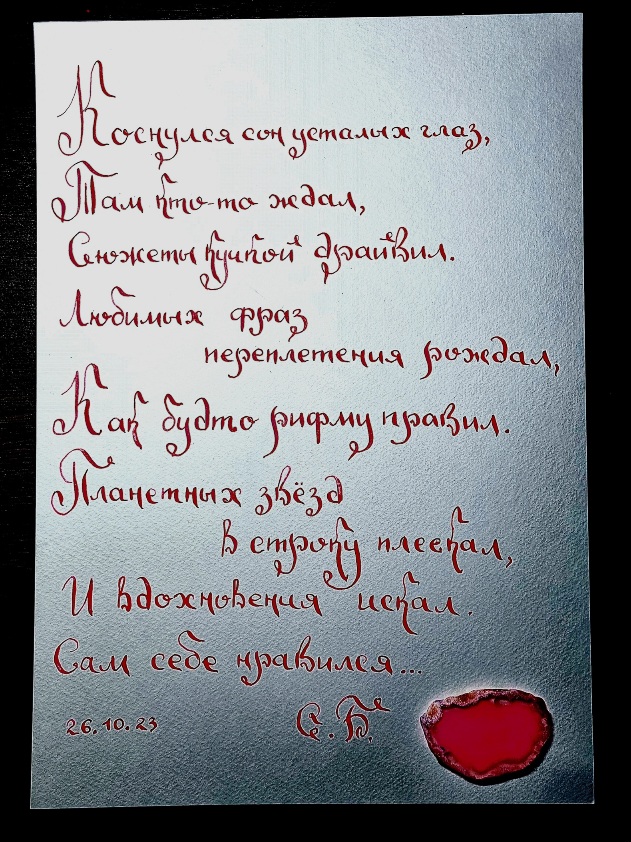 Коснулся сон усталых глаз,
Там кто-то ждал,
Сюжеты кучкой драйвил.
Любимых фраз
переплетения рождал,
Как будто рифму правил.
Планетных звёзд
в строку плескал,
И вдохновения искал.
Сам себе нравился...
26.10.23 С.Б.